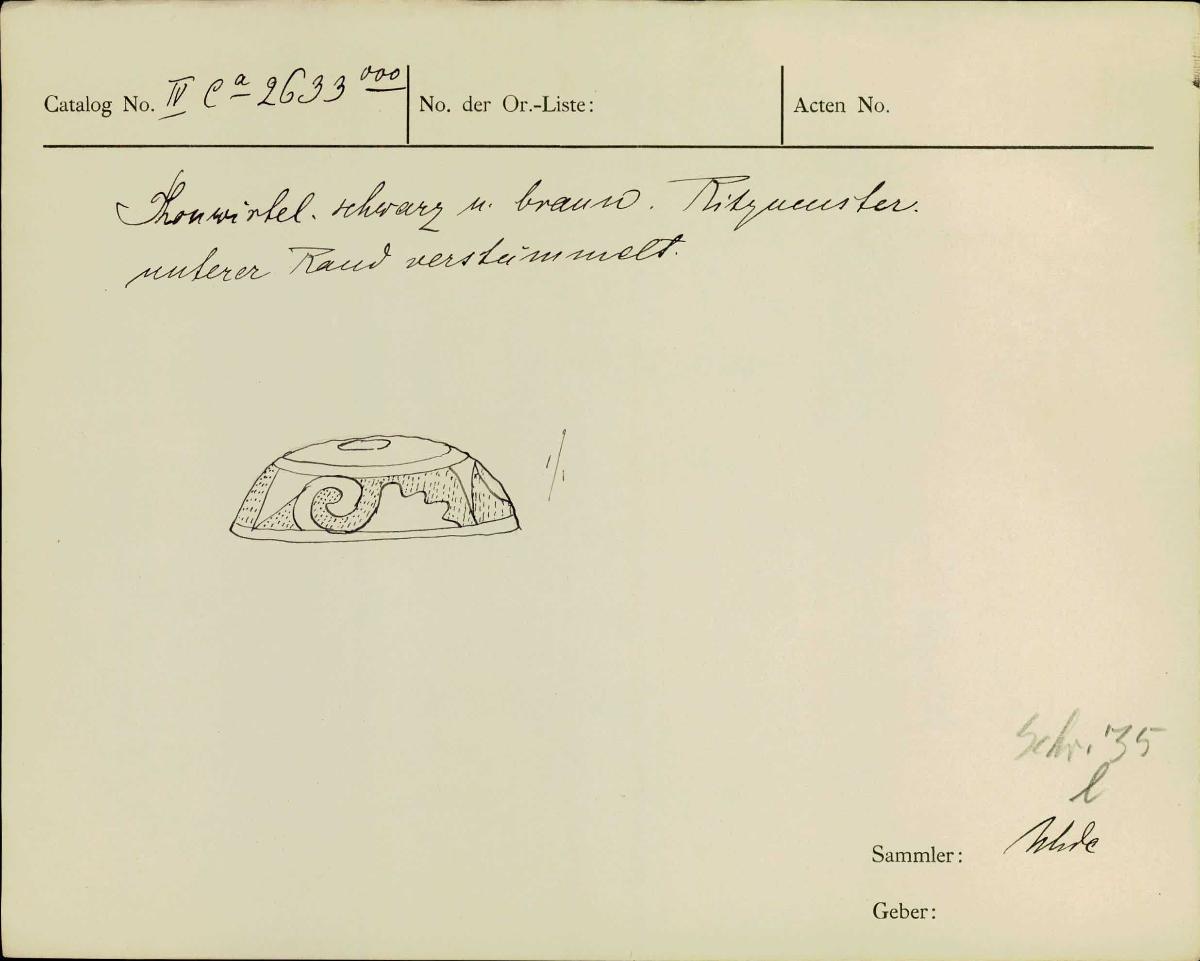 Catalog No. IV Ca 2633 ooo
No. der Or.-Liste:
Acten No.
Thonwirtel. schwarz u. braun. Ritzmuster.
unterer Rand verstümmelt.
1/1
Schr. '35
l
Sammler: Uhde
Geber: